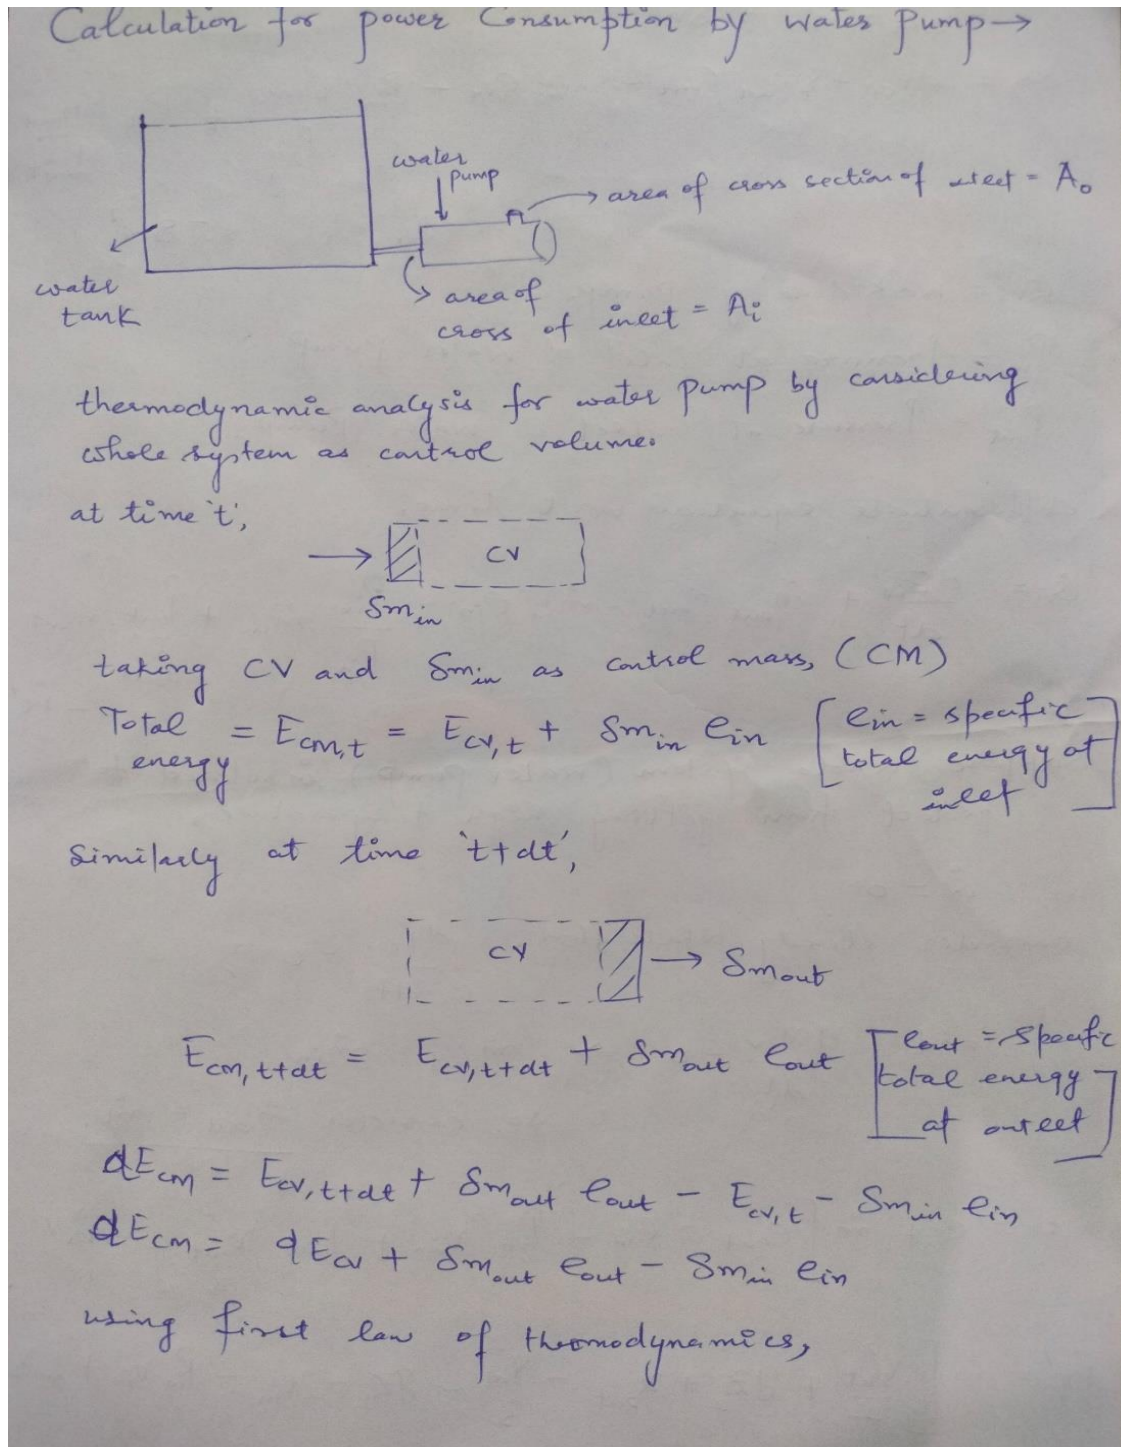 Calculation for power Consumption by water Pump→
water
pump
→ area of cross section of outlet = A₀
water
tank
area of
cross of inlet = Aᵢ
thermodynamic analysis for water pump by considering
whole system as control volume.
at time 't',
CV
δm_in
taking CV and δm_in as control mass, (CM)
Total energy = E_cm,t = E_cv,t + δm_in e_in [e_in = specific
total energy at
inlet]
Similarly at time 't+dt',
CV → δm_out
E_cm,t+dt = E_cv,t+dt + δm_out e_out [e_out = specific
total energy
at outlet]
dE_cm = E_cv,t+dt + δm_out e_out - E_cv,t - δm_in e_in
dE_cm = dE_cv + δm_out e_out - δm_in e_in
using first law of thermodynamics,